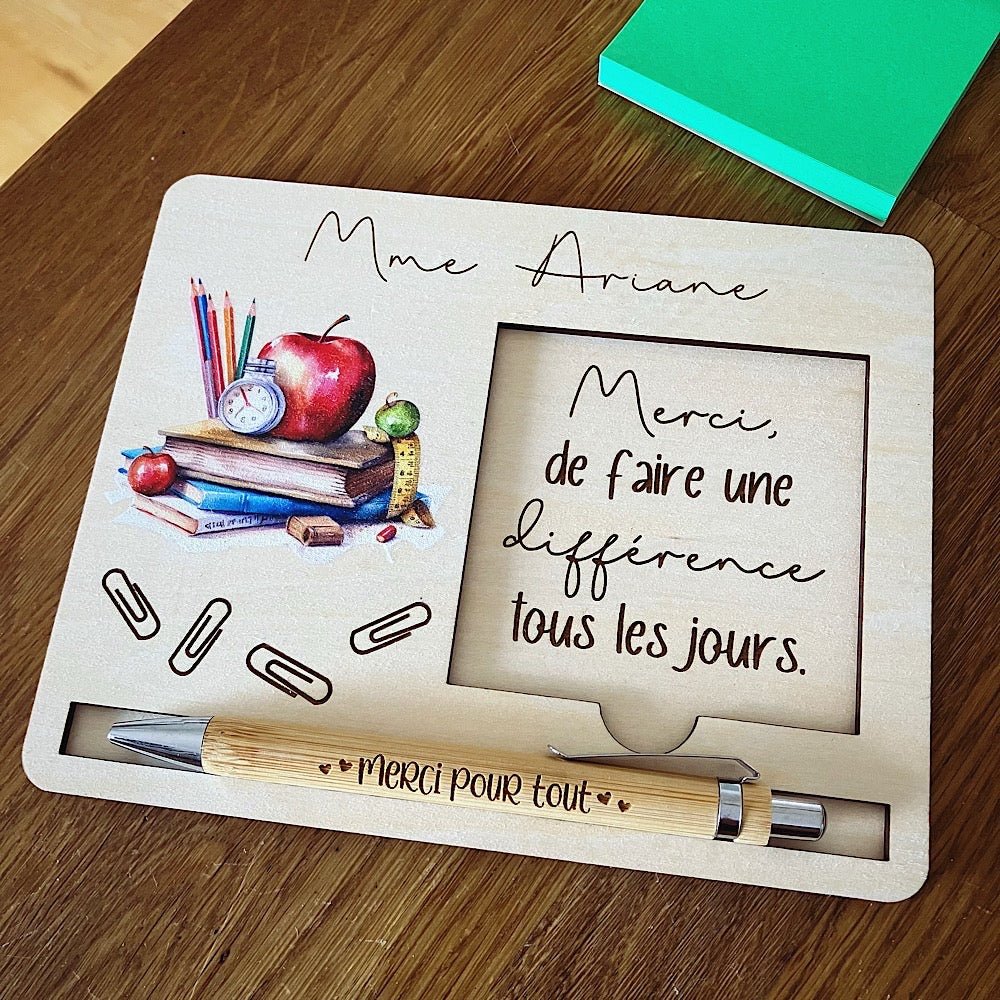 Mme Ariane
Merci,
de faire une
différence
tous les jours.
Merci pour tout